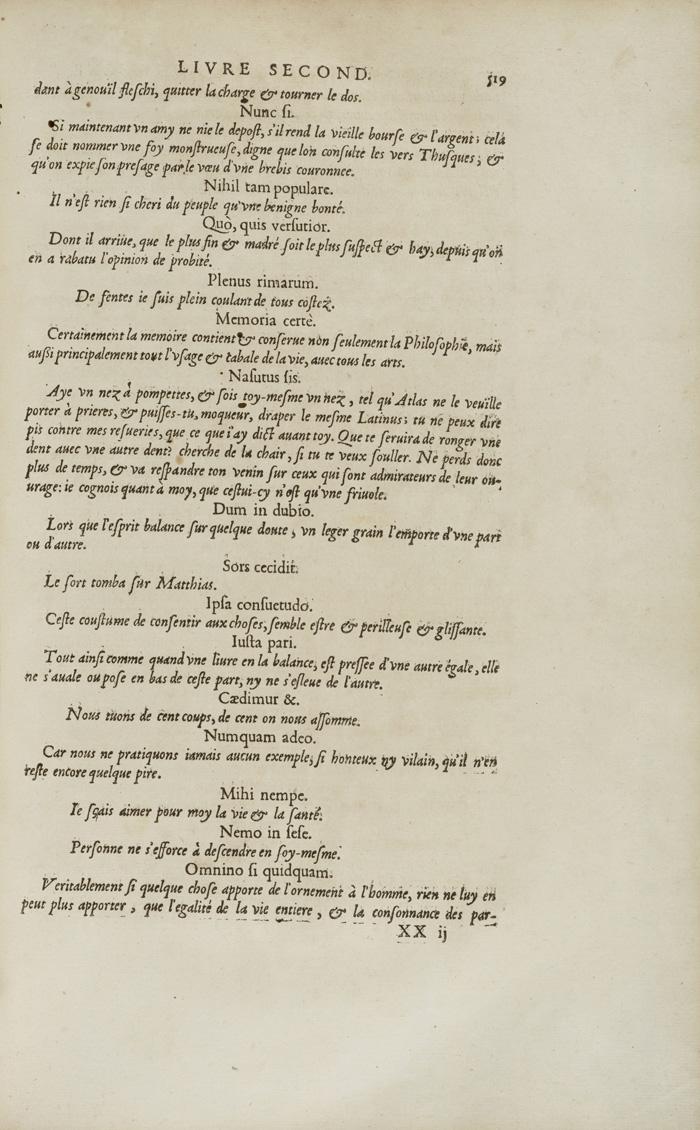 LIVRE SECOND. 519
dant à genouïl fleschi, quitter la charge & tourner le dos.
Nunc si.
Si maintenant vn amy ne nie le depost, s'il rend la vieille bourse & l'argent; celà
se doit nommer vne foy monstrueuse, digne que lon consulte les vers Thusques; &
qu'on expie son presage par le vœu d'vne brebis couronnee.
Nihil tam populare.
Il n'est rien si cheri du peuple qu'vne benigne bonté.
Quò, quis versutior.
Dont il arriue, que le plus fin & madré soit le plus suspect & hay, depuis qu'on
en a rabatu l'opinion de probité.
Plenus rimarum.
De fentes ie suis plein coulant de tous costez.
Memoria certè.
Certainement la memoire contient & conserue non seulement la Philosophie, mais
aussi principalement tout l'vsage & tabale de la vie, auec tous les arts.
Nasutus sis.
Aye vn nez à pompettes, & sois toy-mesme vn nez, tel qu'Atlas ne le veuille
porter à prieres, & puisses-tu, moqueur, draper le mesme Latinus; tu ne peux dire
pis contre mes resueries, que ce que i'ay dict auant toy. Que te seruira de ronger vne
dent auec vne autre dent? cherche de la chair, si tu te veux souller. Ne perds donc
plus de temps, & va respandre ton venin sur ceux qui sont admirateurs de leur ou-
urage: ie cognois quant à moy, que cestui-cy n'est qu'vne friuole.
Dum in dubio.
Lors que l'esprit balance sur quelque doute, vn leger grain l'emporte d'vne part
ou d'autre.
Sors cecidit.
Le sort tomba sur Matthias.
Ipsa consuetudo.
Ceste coustume de consentir aux choses, semble estre & perilleuse & glissante.
Iusta pari.
Tout ainsi comme quand vne liure en la balance, est pressee d'vne autre égale, elle
ne s'auale ou pose en bas de ceste part, ny ne s'esleue de l'autre.
Cædimur &.
Nous tuons de cent coups, de cent on nous assomme.
Numquam adeo.
Car nous ne pratiquons iamais aucun exemple, si honteux ny vilain, qu'il n'en
reste encore quelque pire.
Mihi nempe.
Ie sçais aimer pour moy la vie & la santé.
Nemo in sese.
Personne ne s'efforce à descendre en soy-mesme.
Omnino si quidquam.
Veritablement si quelque chose apporte de l'ornement à l'homme, rien ne luy en
peut plus apporter, que l'egalité de la vie entiere, & la consonnance des par-
XX ij